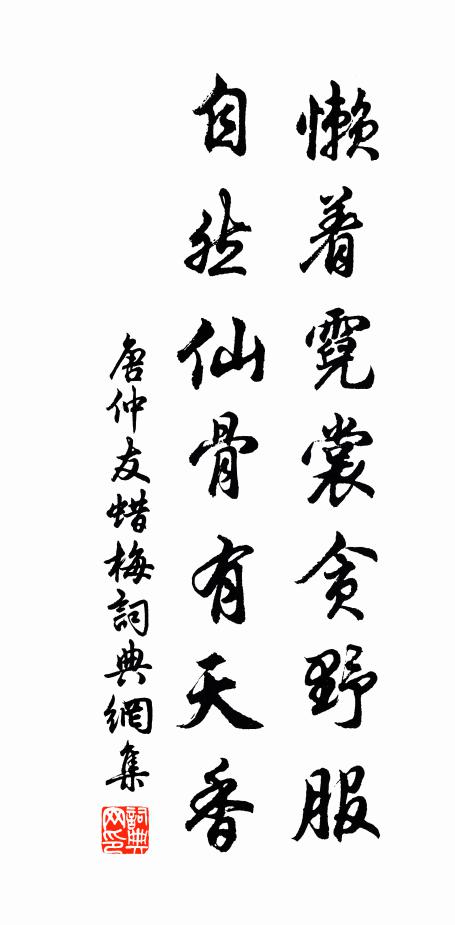 懒着霓裳贪野服
自然仙骨有天香
唐仲友蜡梅詞典網集
詞典网印